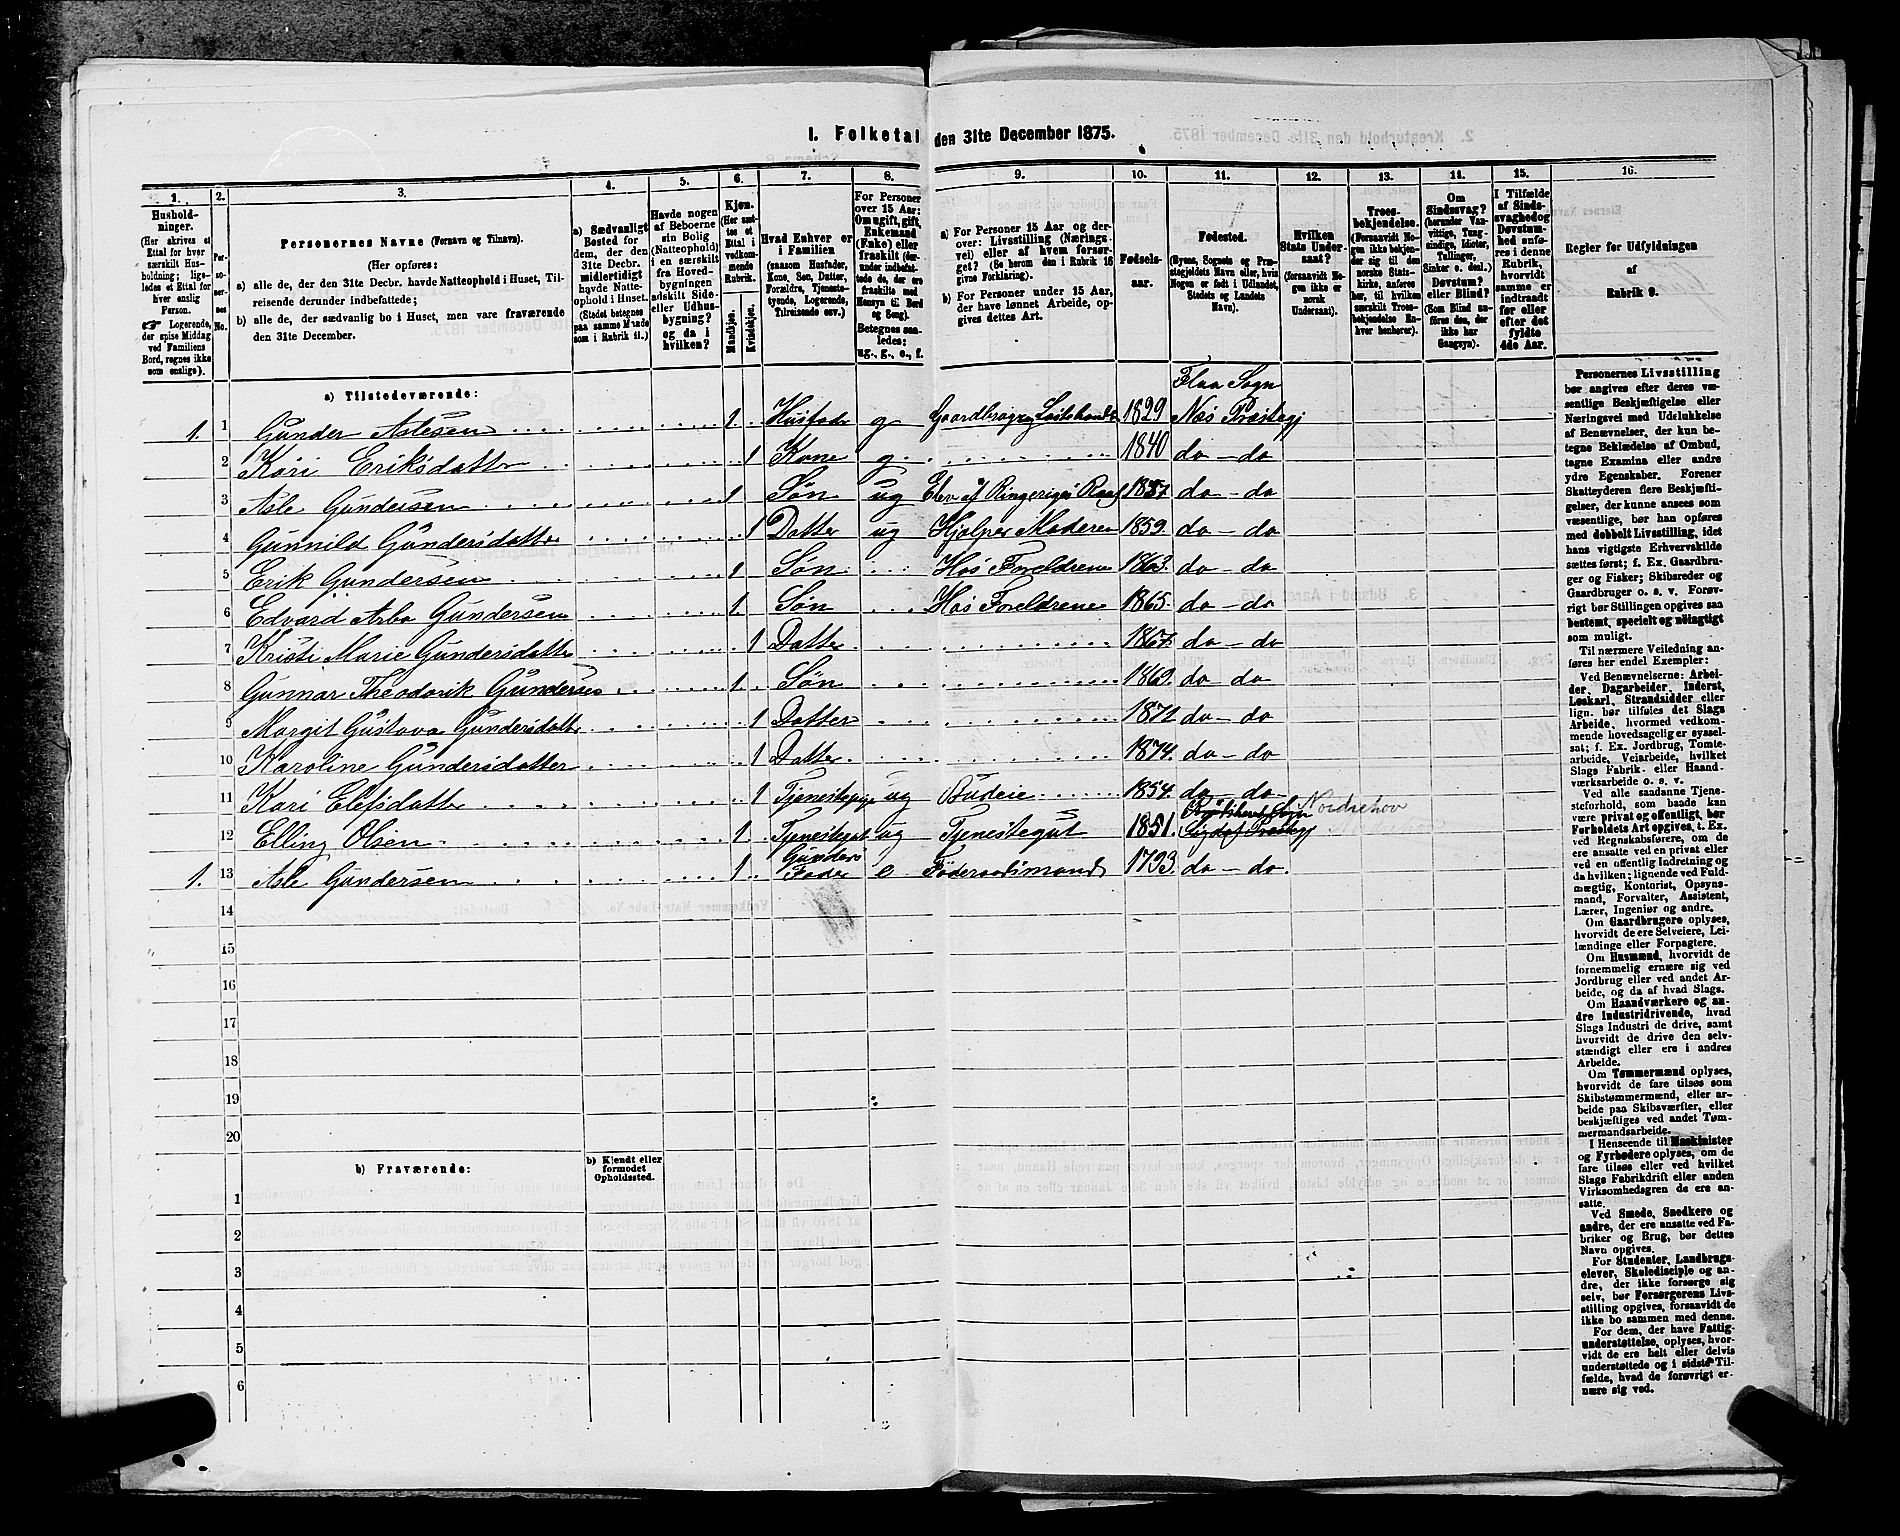 1. Folketal den 31te December 1875.
1. 2. 3. 4. 5. 6. 7. 8. 9. 10. 11. 12. 13. 14. 15. 16.
Hushold-
ninger.
(Her skrives et
Ettal for hver
særskilt Hus-
holdning; lige-
ledes et Ettal for
hver enslig
Person.
☞ Logerende,
der spise Middag
ved Familiens
Bord, regnes ikke
som enslige).
Per-
so-
ner-
nes
No.
Personernes Navne (Fornavn og Tilnavn).
(Her opføres:
a) alle de, der den 31te Decbr. havde Natteophold i Huset, Til-
reisende derunder indbefattede;
b) alle de, der sædvanlig bo i Huset, men vare fraværende
den 31te December.
a) Sædvanligt
Bosted for
dem, der den
31te Decbr.
midlertidigt
havde Natte-
ophold i Huset.
(Stedet betegnes
paa samme Maade
som i Rubrik 11.)
Havde nogen
af Beboerne
sin Bolig
(Natteophold)
i en særskilt
fra Hoved-
bygningen
adskilt Side-
eller Udhus-
bygning?
og da i
hvilken?
Kjøn.
(Her sæt-
tes et
Ettal i
vedkom-
mende
Rubrik.
Mandkjøn.
Kvindekjøn.
Hvad Enhver er
i Familien
(saasom Husfader,
Kone, Søn, Datter,
Forældre, Tjeneste-
tyende, Logerende,
Tilreisende osv.)
For Personer
over 15 Aar:
Om ugift, gift,
Enkemand
(Enke) eller
fraskilt (der-
under indbefat-
tede de, der ere
fraskilte med
Hensyn til Bord
og Seng).
Betegnes saa-
ledes:
ug., g., e., f.
a) For Personer 15 Aar og der-
over: Livsstilling (Nærings-
vei) eller af hvem forsør-
get? (Se herom den i Rubrik 16
givne Forklaring).
b) For Personer under 15 Aar,
der have lønnet Arbeide, op-
gives dettes Art.
Fødsels-
aar.
Fødested.
(Byens, Sognets og Præ-
stegjeldets Navn eller, hvis
Nogen er født i Udlandet,
Stedets og Landets
Navn).
Hvilken
Stats Under-
saat?
(forsaavidt No-
gen ikke er
norsk
Undersaat).
Troes-
bekjendelse.
(Forsaavidt No-
gen ikke bekjen-
der sig til den
norske Stats-
kirke, anføres
her, til hvilken
særskilt Troes-
bekjendelse En-
hver henhører).
Om
Sindssvag?
(herunder Van-
vittige, Tung-
sindige, Idioter,
Tullinger,
Sinker o. desl.)
Døvstum?
eller Blind?
(Som Blind an-
føres den, der
ikke har
Gangsyn).
I Tilfælde
af Sinds-
svaghed og
Døvstum-
hed anfø-
res i denne
Rubrik,
hvorvidt
samme er
indtraadt
før eller
efter det
fyldte
4de Aar.
Regler for Udfyldningen
af
Rubrik 9.
a) Tilstedeværende:
Flaa Sogn
1. 1 Gunder Aslesen 1 Husfader g Gaardbruger 1829 Næs Præstegj
2 Kari Eriksdatter 1 Kone g 1840 do - do
3 Asle Gundersen 1 Søn ug Elev af Ringeriges 1857 do - do
4 Gunnild Gundersdatter 1 Datter ug Hjelper Moderen 1859. do - do
5 Erik Gundersen 1 Søn Hos Foreldrene 1863. do - do
6 Edvard Arbo Gundersen 1 Søn Hos Foreldrene 1865. do - do
7 Kristi Marie Gundersdatter 1 Datter 1867. do - do
8 Gunnar Theodorik Gundersen 1 Søn 1869. do - do
9 Margit Gustava Gundersdatter 1 Datter 1872 do - do
10 Karoline Gundersdatter 1 Datter 1874. do - do
11 Kari Elefsdatter 1 Tjenestepige ug Budeie 1854. do - do
Nordrehov
12 Elling Olsen 1 Tjenestegut ug Tjenestegut 1851. Sigdal Præstegj
Gunders
1. 13 Asle Gundersen 1 Fader e Føderaadsmand 1793. do - do.
14
15
16
17
18
19
20
b) Fraværende:
b) Kjendt eller
formodet
Opholdssted.
1
2
3
4
5
6
Personernes Livsstilling
bør angives efter deres væ-
sentlige Beskjæftigelse eller
Næringsvei med Udelukkelse
af Benævnelser, der kun be-
tegne Beklædelse af Ombud,
tagne Examina eller andre
ydre Egenskaber. Forener
Skatteyderen flere Beskjæfti-
gelser, der kunne ansees som
væsentlige, bør han opføres
med dobbelt Livsstilling, idet
hans vigtigste Erhvervskilde
sættes først; f. Ex. Gaardbru-
ger og Fisker; Skibsreder og
Gaardbruger o. s. v. Forøv-
rigt bør Stillingen opgives saa
bestemt, specielt og nöiagtigt
som muligt.
Til nærmere Veiledning an-
føres her endel Exempler:
Ved Benævnelserne: Arbei-
der, Dagarbeider, Inderst,
Løskarl, Strandsidder eller
lign. bør tilføies det Slags
Arbeide, hvormed vedkom-
mende hovedsagelig er syssel-
sat; f. Ex. Jordbrug, Tomte-
arbeide, Veiarbeide, hvilket
Slags Fabrik- eller Haand-
værksarbeide o. s. v.
Ved alle saadanne Tjene-
steforhold, som baade kan
være privat og offentligt, bør
Forholdets Art opgives, f. Ex.
ved Regnskabsførere, om de
ere ansatte ved en privat eller
ved en offentlig Indretning og
da hvilken; lignende ved Fuld-
mægtig, Kontorist, Opsyns-
mand, Forvalter, Assistent,
Lærer, Ingeniør og andre.
Om Gaardbrugere oplyses,
hvorvidt de ere Selveiere, Lei-
lændinge eller Forpagtere.
Om Husmænd, hvorvidt de
fornemmelig ernære sig ved
Jordbrug eller ved andet Ar-
beide, og da af hvad Slags.
Om Haandværkere og an-
dre Industridrivende, hvad
Slags Industri de drive, samt
hvorvidt de drive den selv-
stændigt eller ere i andres
Arbeide.
Om Tømmermænd oplyses,
hvorvidt de fare tilsøs som
Skibstømmermænd, eller ar-
beide paa Skibsværfter, eller
beskjæftiges ved andet Tøm-
mermandsarbeide.
I Henseende til Maskinister
og Fyrbødere oplyses, om de
fare tilsøs eller ved hvilket
Slags Fabrikdrift eller anden
Virksomhedsgren de ere an-
satte.
Ved Smede, Snedkere og
andre, der ere ansatte ved Fa-
briker og Brug, bør dettes
Navn opgives.
For Studenter, Landbrugs-
elever, Skoledisciple og an-
dre, der ikke forsørge sig
selv, bør Forsørgerens Livs-
stilling opgives, forsaavidt de
ikke bo sammen med denne.
For dem, der have Fattig-
understøttelse, oplyses, hvor-
vidt de ere helt eller delvis
understøttede og i sidste Til-
fælde, hvad de forøvrigt er-
nære sig ved.